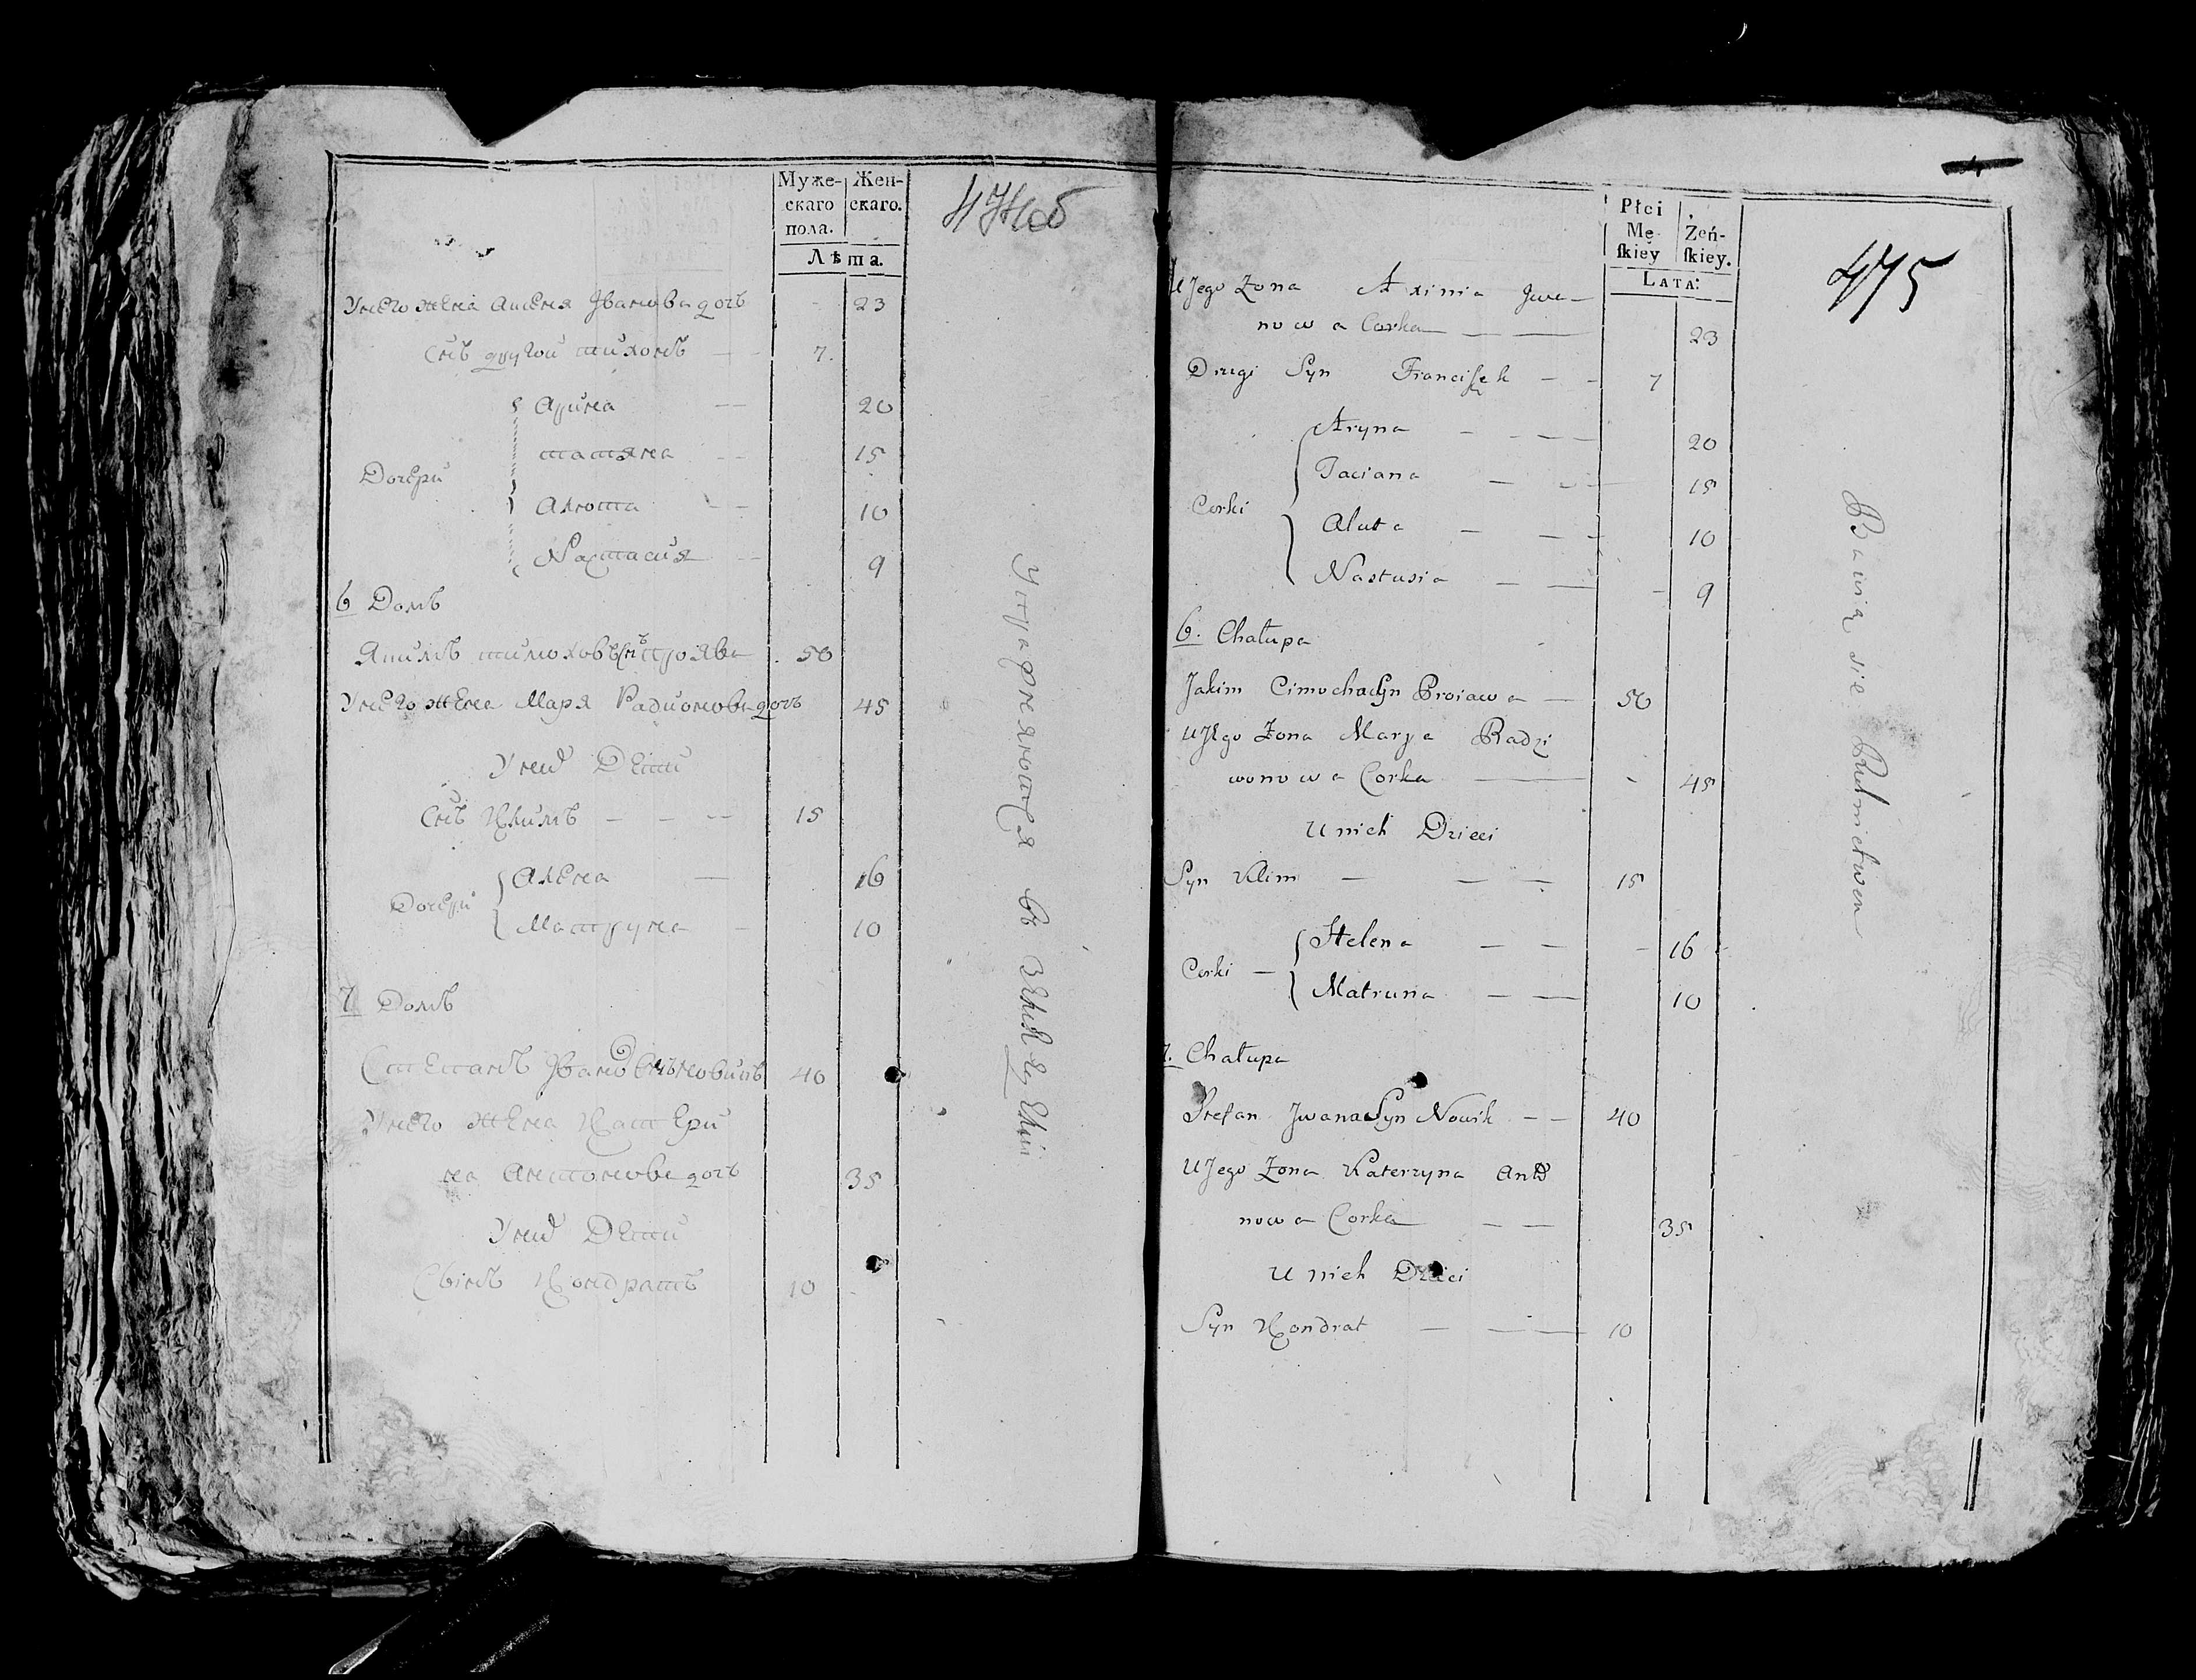 Муже-
скаго
пола.
Жен-
скаго.
Лѣта.
474об
Унего жена Аксеня Иванова дочь - 23
Сынъ другой тихонъ — - 7.
Дочери
Арина — 20
татяна — 15
Алюта — 10
Настасия — 9
6 Домъ
Якимъ тимоховъ Снъ Проява 50
Унего жена Маря Радионова дочь 45
Уних Дети
Снъ Климъ — — — 15
Дочери
Алена — 16
Матруна - 10
7 Домъ
Степанъ Иванов Снъ Новикъ 40
Унего жена Катери
на Антонова дочь 35
Уних Дети
Сынъ Кондратъ 10
Упражняются въ земледелии
Płci
Mę-
skiey
Żeń-
skiey.
Lata:
475
U Jego Żona Axinia Jwa—
nowa Corka — — 23
Drugi Syn Franciszek — - 7
Corki
Aryna - - — — 20
Taciana — - — 15
Aluta — — - 10
Nastusia — — - 9
6. Chałupa
Jakim Cimocha Syn Proiawa — 50
U Jego Żona Marya Radzi
wonowa Corka — - 45
U nich Dzieci
Syn Klim — — — 15
Corki —
Helena — — - 16
Matruna — — 10
7. Chałupa
Stefan Jwana Syn Nowik — — 40
U Jego Żona Katerzyna Anto
nowa Corka — — 35
U nich Dzieci
Syn Kondrat — — — 10
Bawią się Rolnictwem